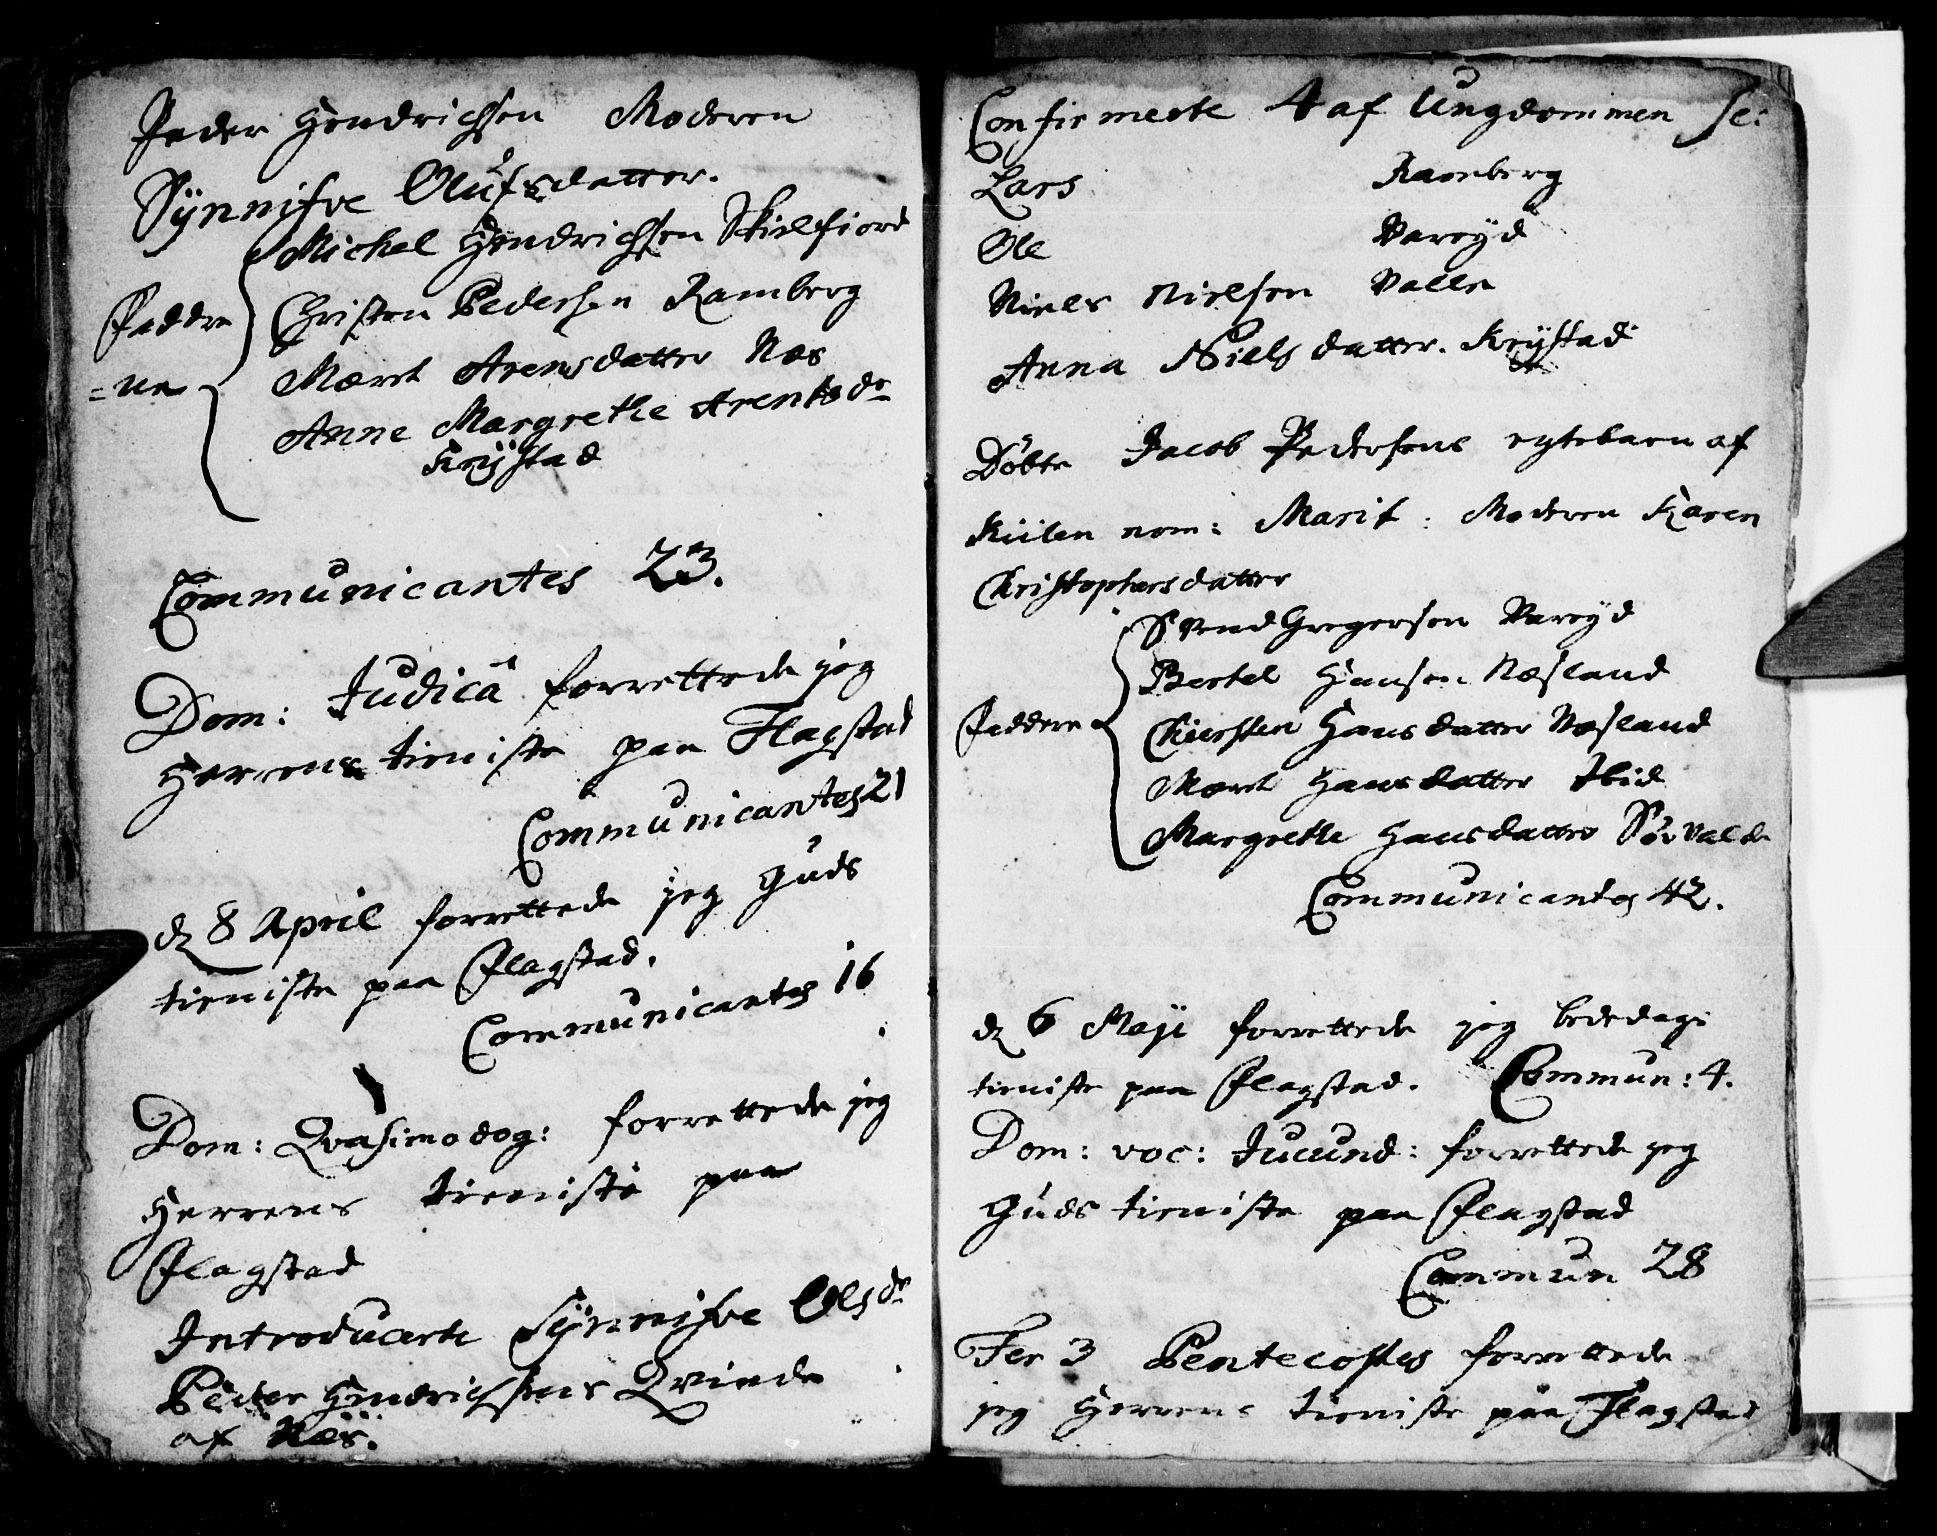 Peder Hendrichsen Moderen
Synnifve Olufsdatter.
Michel Hendrichsen Skielfiord
Christen Pedersen Ramberg
Faddre
Maret Arensdatter Næs
=ne
Anne Margrethe Arentsdr
Krystad
Communicantes 23.
Dom: Judica forrettede jeg
Herrens tieniste paa Flagstad
Communicantes 21
d 8 April forrettede jeg Guds
tieniste paa Flagstad.
Communicantes 16
Dom: Qvasimodog: forrettede jeg
Herrens tieniste paa
Flagstad
Introducerte Synnifve Olsdr
Peder Hendrichsens Qvinde
af Næs.
Confirmerte 4 af Ungdommen sc:
Lars Ramberg
Ole Vareyd
Niels Nielsen Valle
Anna Nielsdatter. Krystad
Döbte Jacob Pedersens egtebarn af
Kiilen nom: Marit: Moderen Karen
Christophersdatter
Svend Gregersen Vareyd
Bertel Hansen Næsland
Faddere Chiersten Hansdatter Næsland
Maret Hansdatter Ibid
Margrethe Hansdatter
Communicantes 42.
d 6 Maji forrettede jeg bededags
tieniste paa Flagstad. Commun: 4.
Dom: voc: Jucund: forrettede jeg
Guds tieniste paa Flagstad
Commun 28
Fer 3 Pentecostes forrettede
jeg Herrens tieniste paa Flagstad